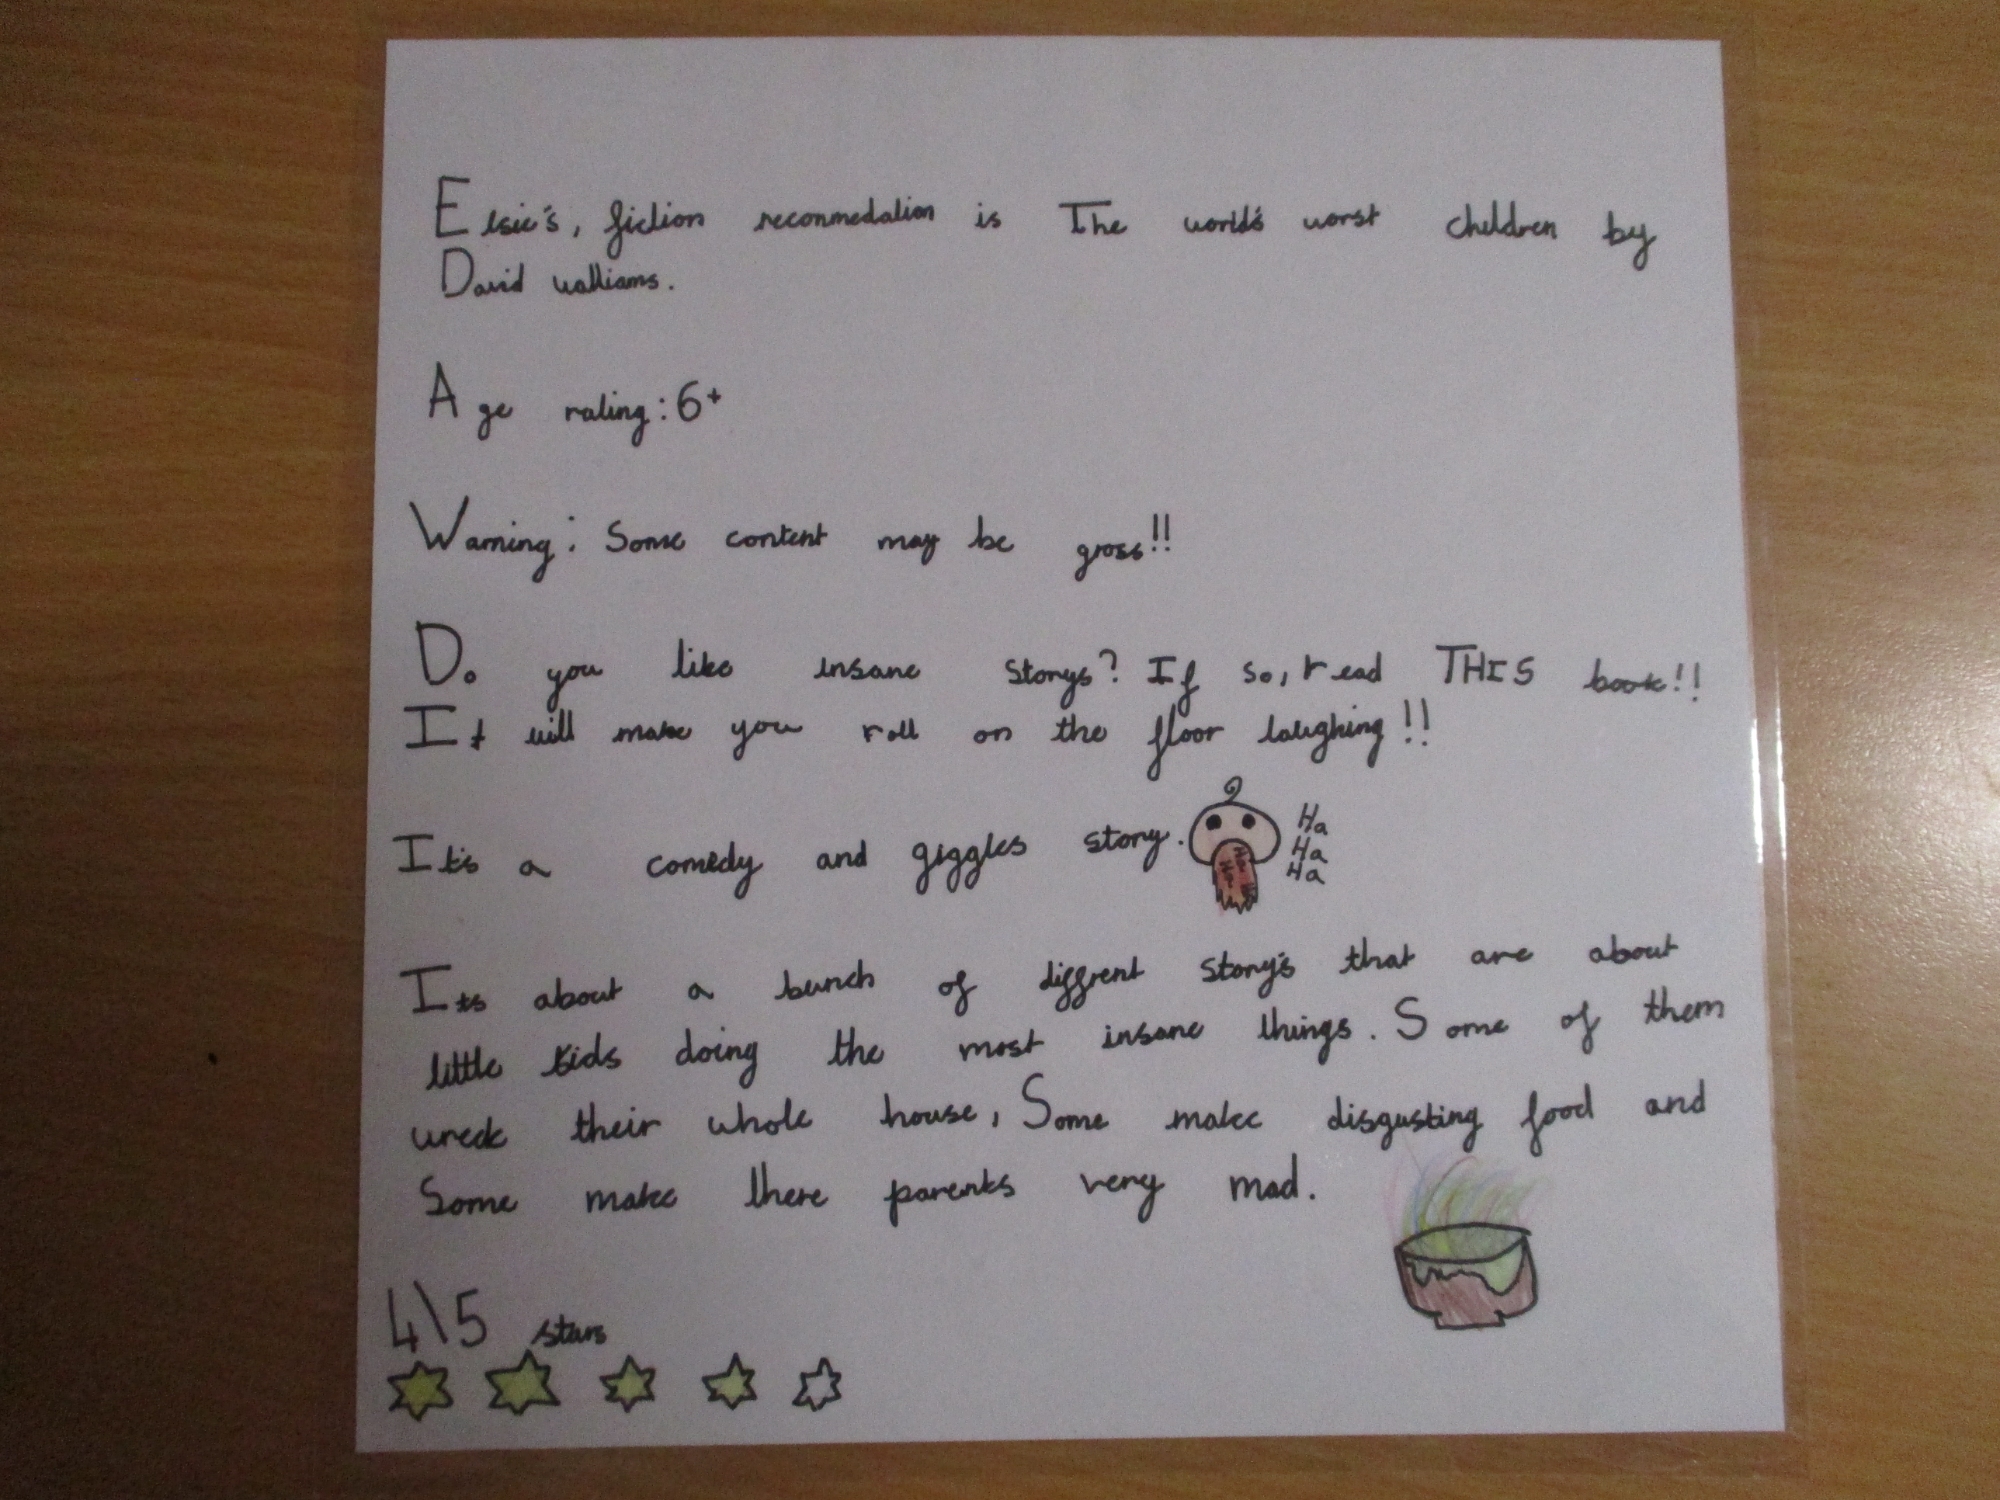 Elsie's, fiction reconmedation is The world's worst children by
David walliams.
Age rating: 6+
Warning: Some content may be gross!!
Do you like insane storys? If so, read THIS book!!
It will make you roll on the floor laughing!!
It's a comedy and giggles story.
Ha
Ha
Ha
Its about a bunch of diffrent story's that are about
little kids doing the most insane things. Some of them
wreck their whole house, Some make disgusting food and
Some make there parents very mad.
4\5 stars